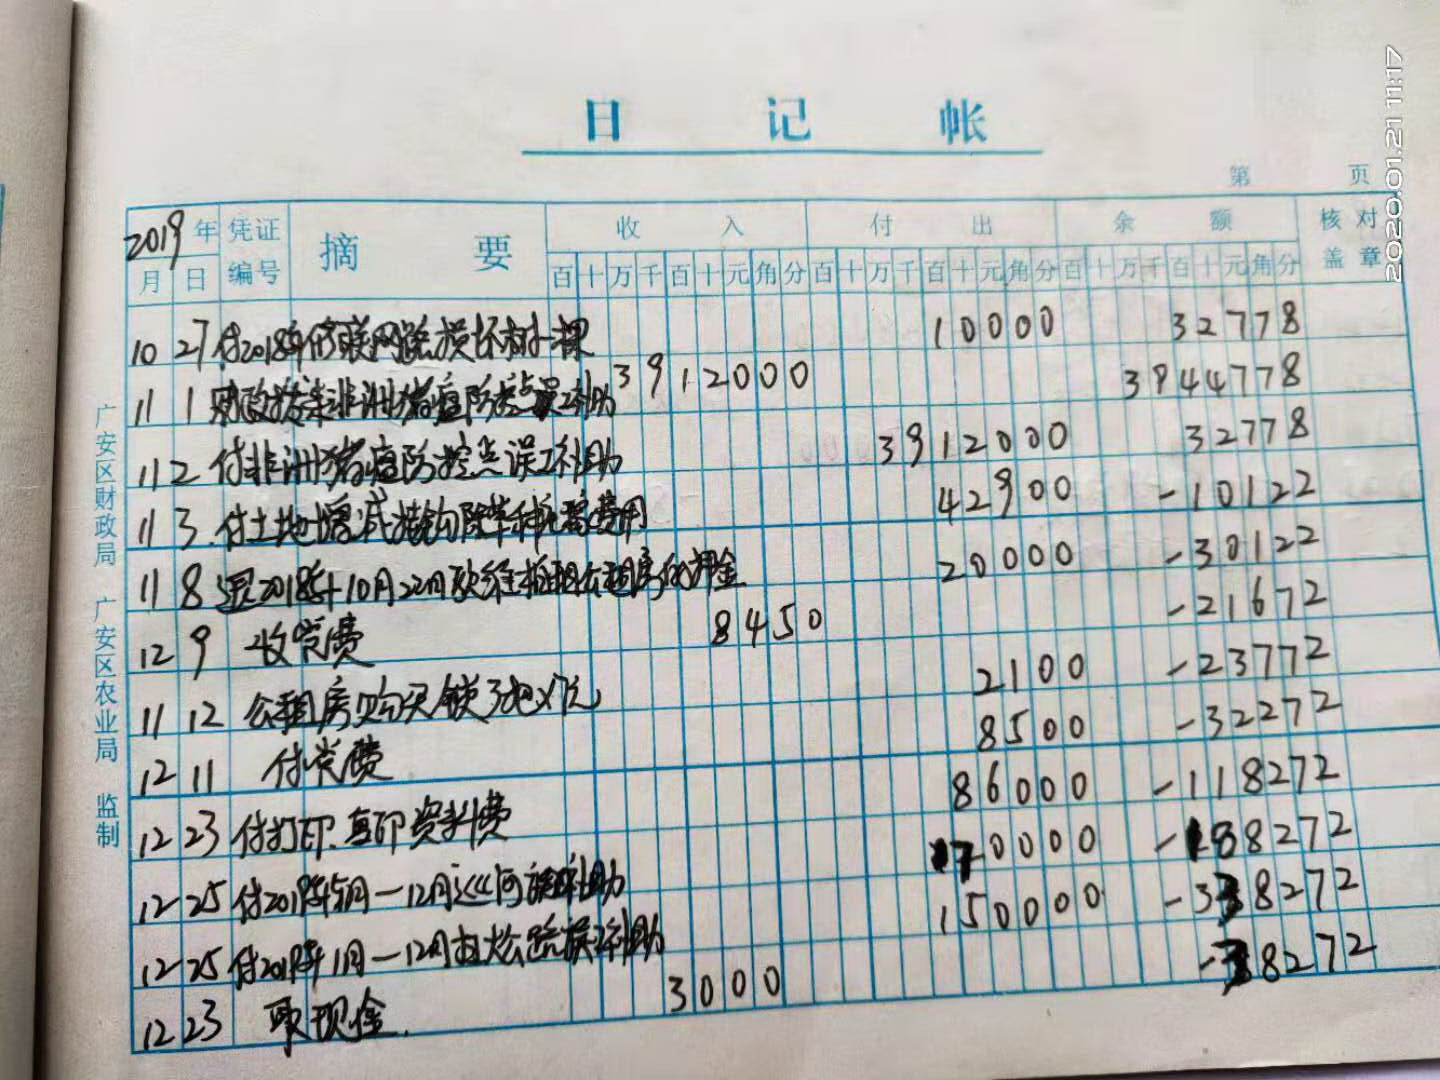 日记帐
第 页
2019年 凭证编号 摘要 收入 付出 余额 核对盖章
月 日 百十万千百十元角分 百十万千百十元角分 百十万千百十元角分
10 27 付2018年修联网路损坏树一棵 10000 32778
11 1 财政拨来非洲猪瘟防控点误工补助 3912000 3944778
11 2 付非洲猪瘟防控点误工补助 3912000 32778
11 3 付土地增减挂钩除草种 费用 42900 -10122
11 8 退2018年10月22日 租公租房的押金 20000 -30122
12 9 收党费 8450 -21672
11 12 公租房购买锁3把×7元 2100 -23772
12 11 付党费 8500 -32272
12 23 付打印、复印资料费 86000 -118272
12 25 付2019年 月—12月巡河 补助 70000 -188272
12 25 付2019年1月—12月 公路误工补助 150000 -338272
12 23 取现金. 3000 -38272
广安区财政局 广安区农业局 监制
2020.01.21 11:17